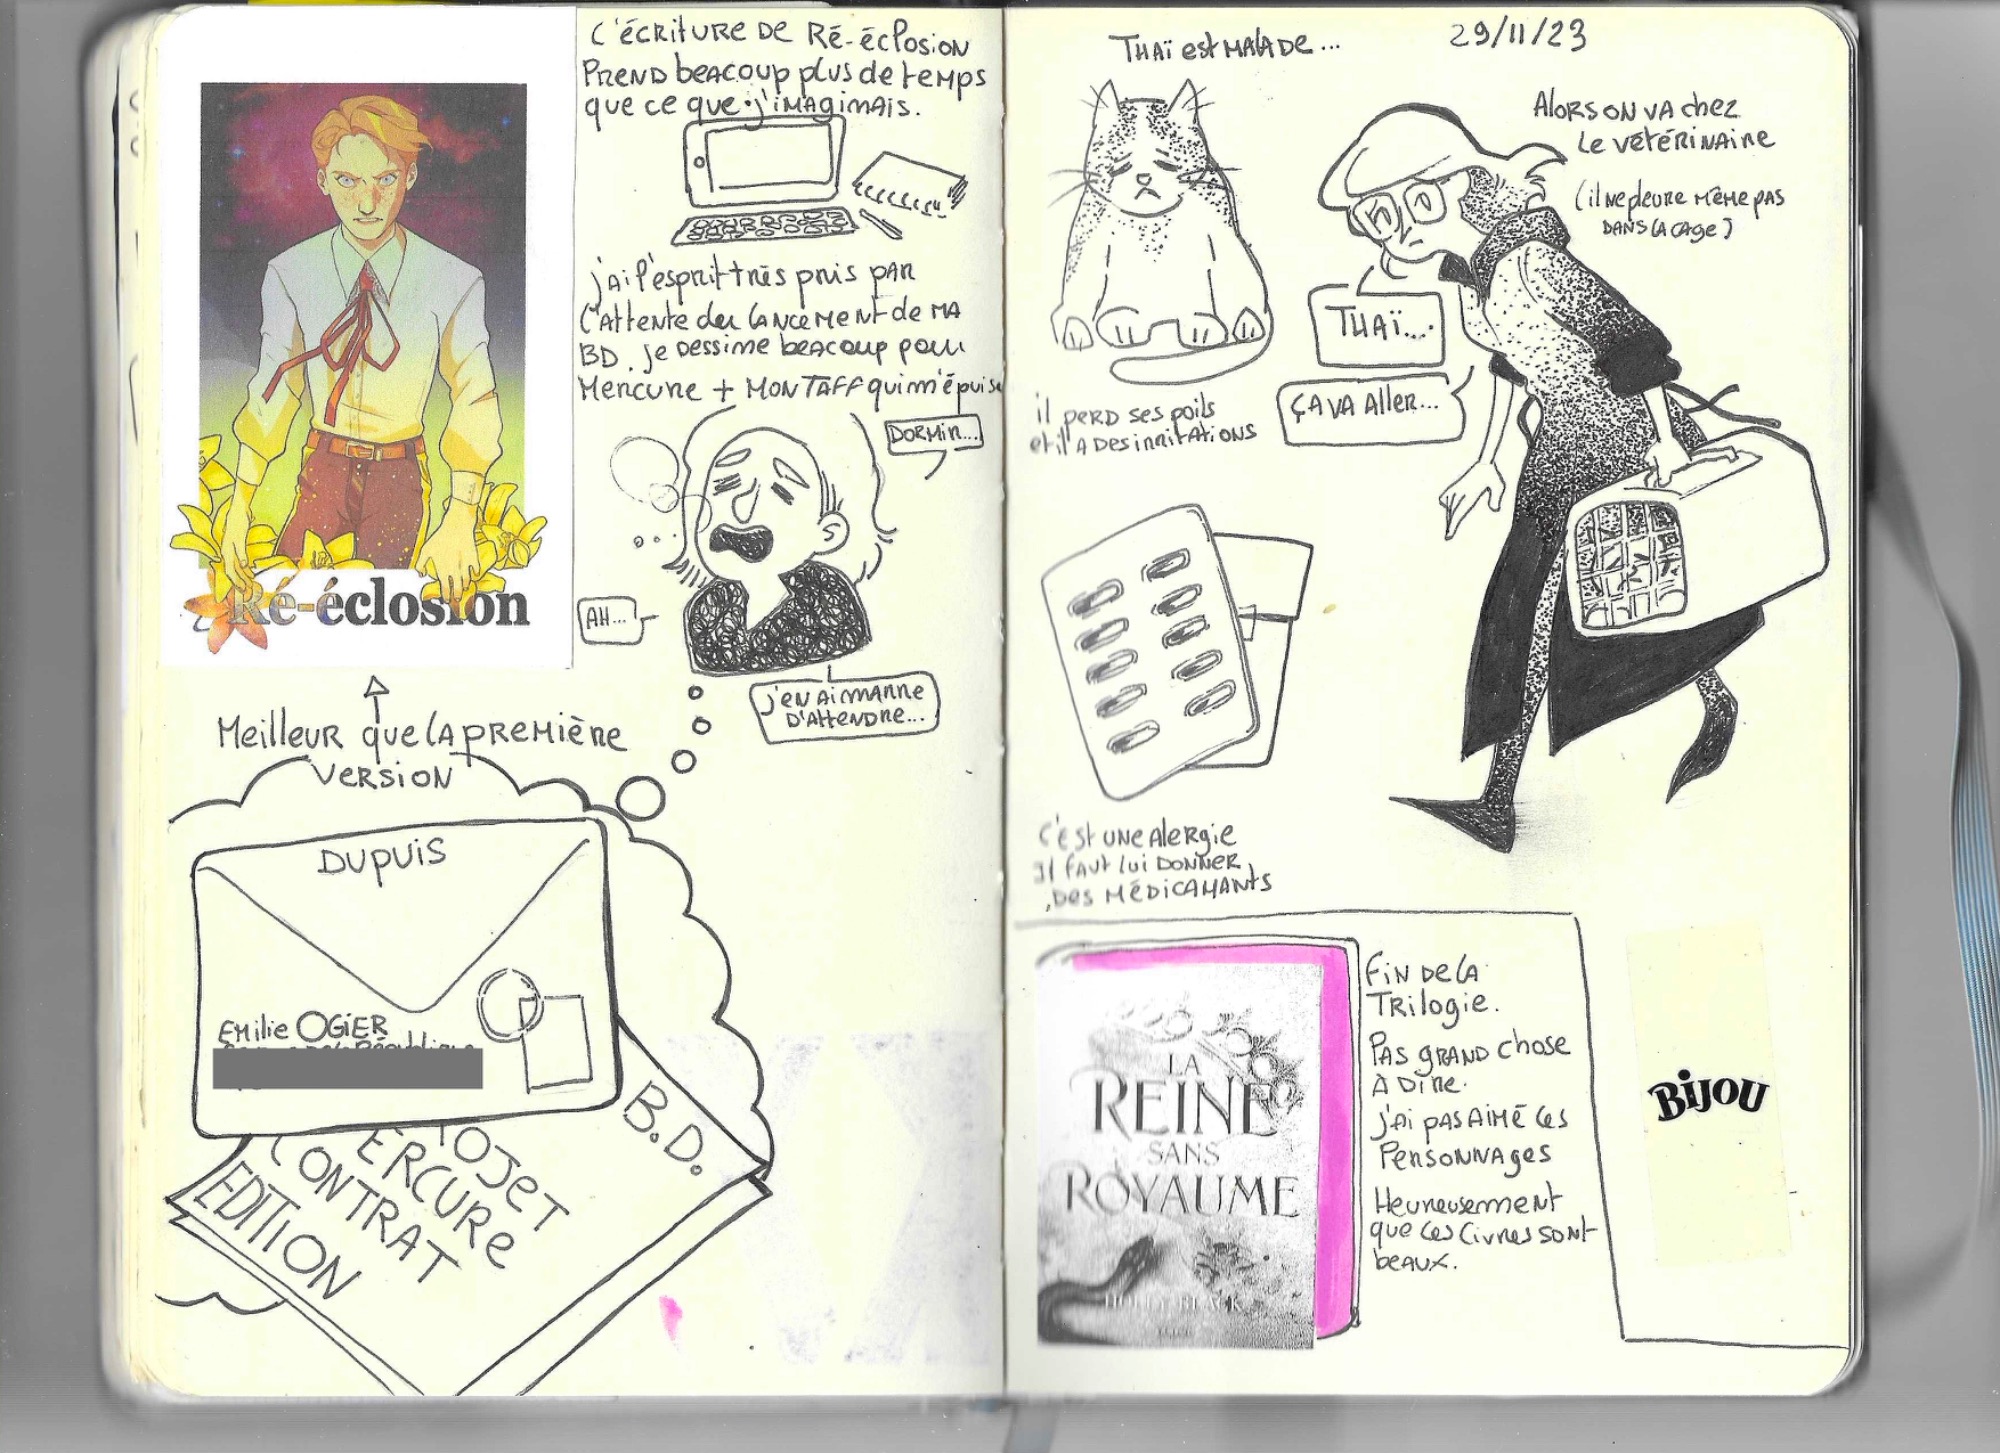 C'écriture de Ré-éclosion
prend beacoup plus de temps
que ce que j'imaginais.
j'ai l'esprit très pris par
l'attente du lancement de ma
BD. je dessine beacoup pour
Mercure + mon taff qui m'épuise
Dormir...
AH...
j'en ai marre
d'attendre...
Ré-éclosion
Meilleur que la première
version
Dupuis
Emilie OGIER
B.D.
ROJET
ERCURE
CONTRAT
EDITION
Thaï est malade...
29/11/23
Alors on va chez
le vétérinaire
(il ne pleure même pas
dans la cage)
Thaï...
ça va aller...
il perd ses poils
et il a des irritations
c'est une alergie
il faut lui donner
des médicamants
LA
REINE
SANS
ROYAUME
HOLLY BLACK
Fin de la
Trilogie.
Pas grand chose
à dire.
j'ai pas aimé les
personnages
Heureusement
que les livres sont
beaux.
BIJOU